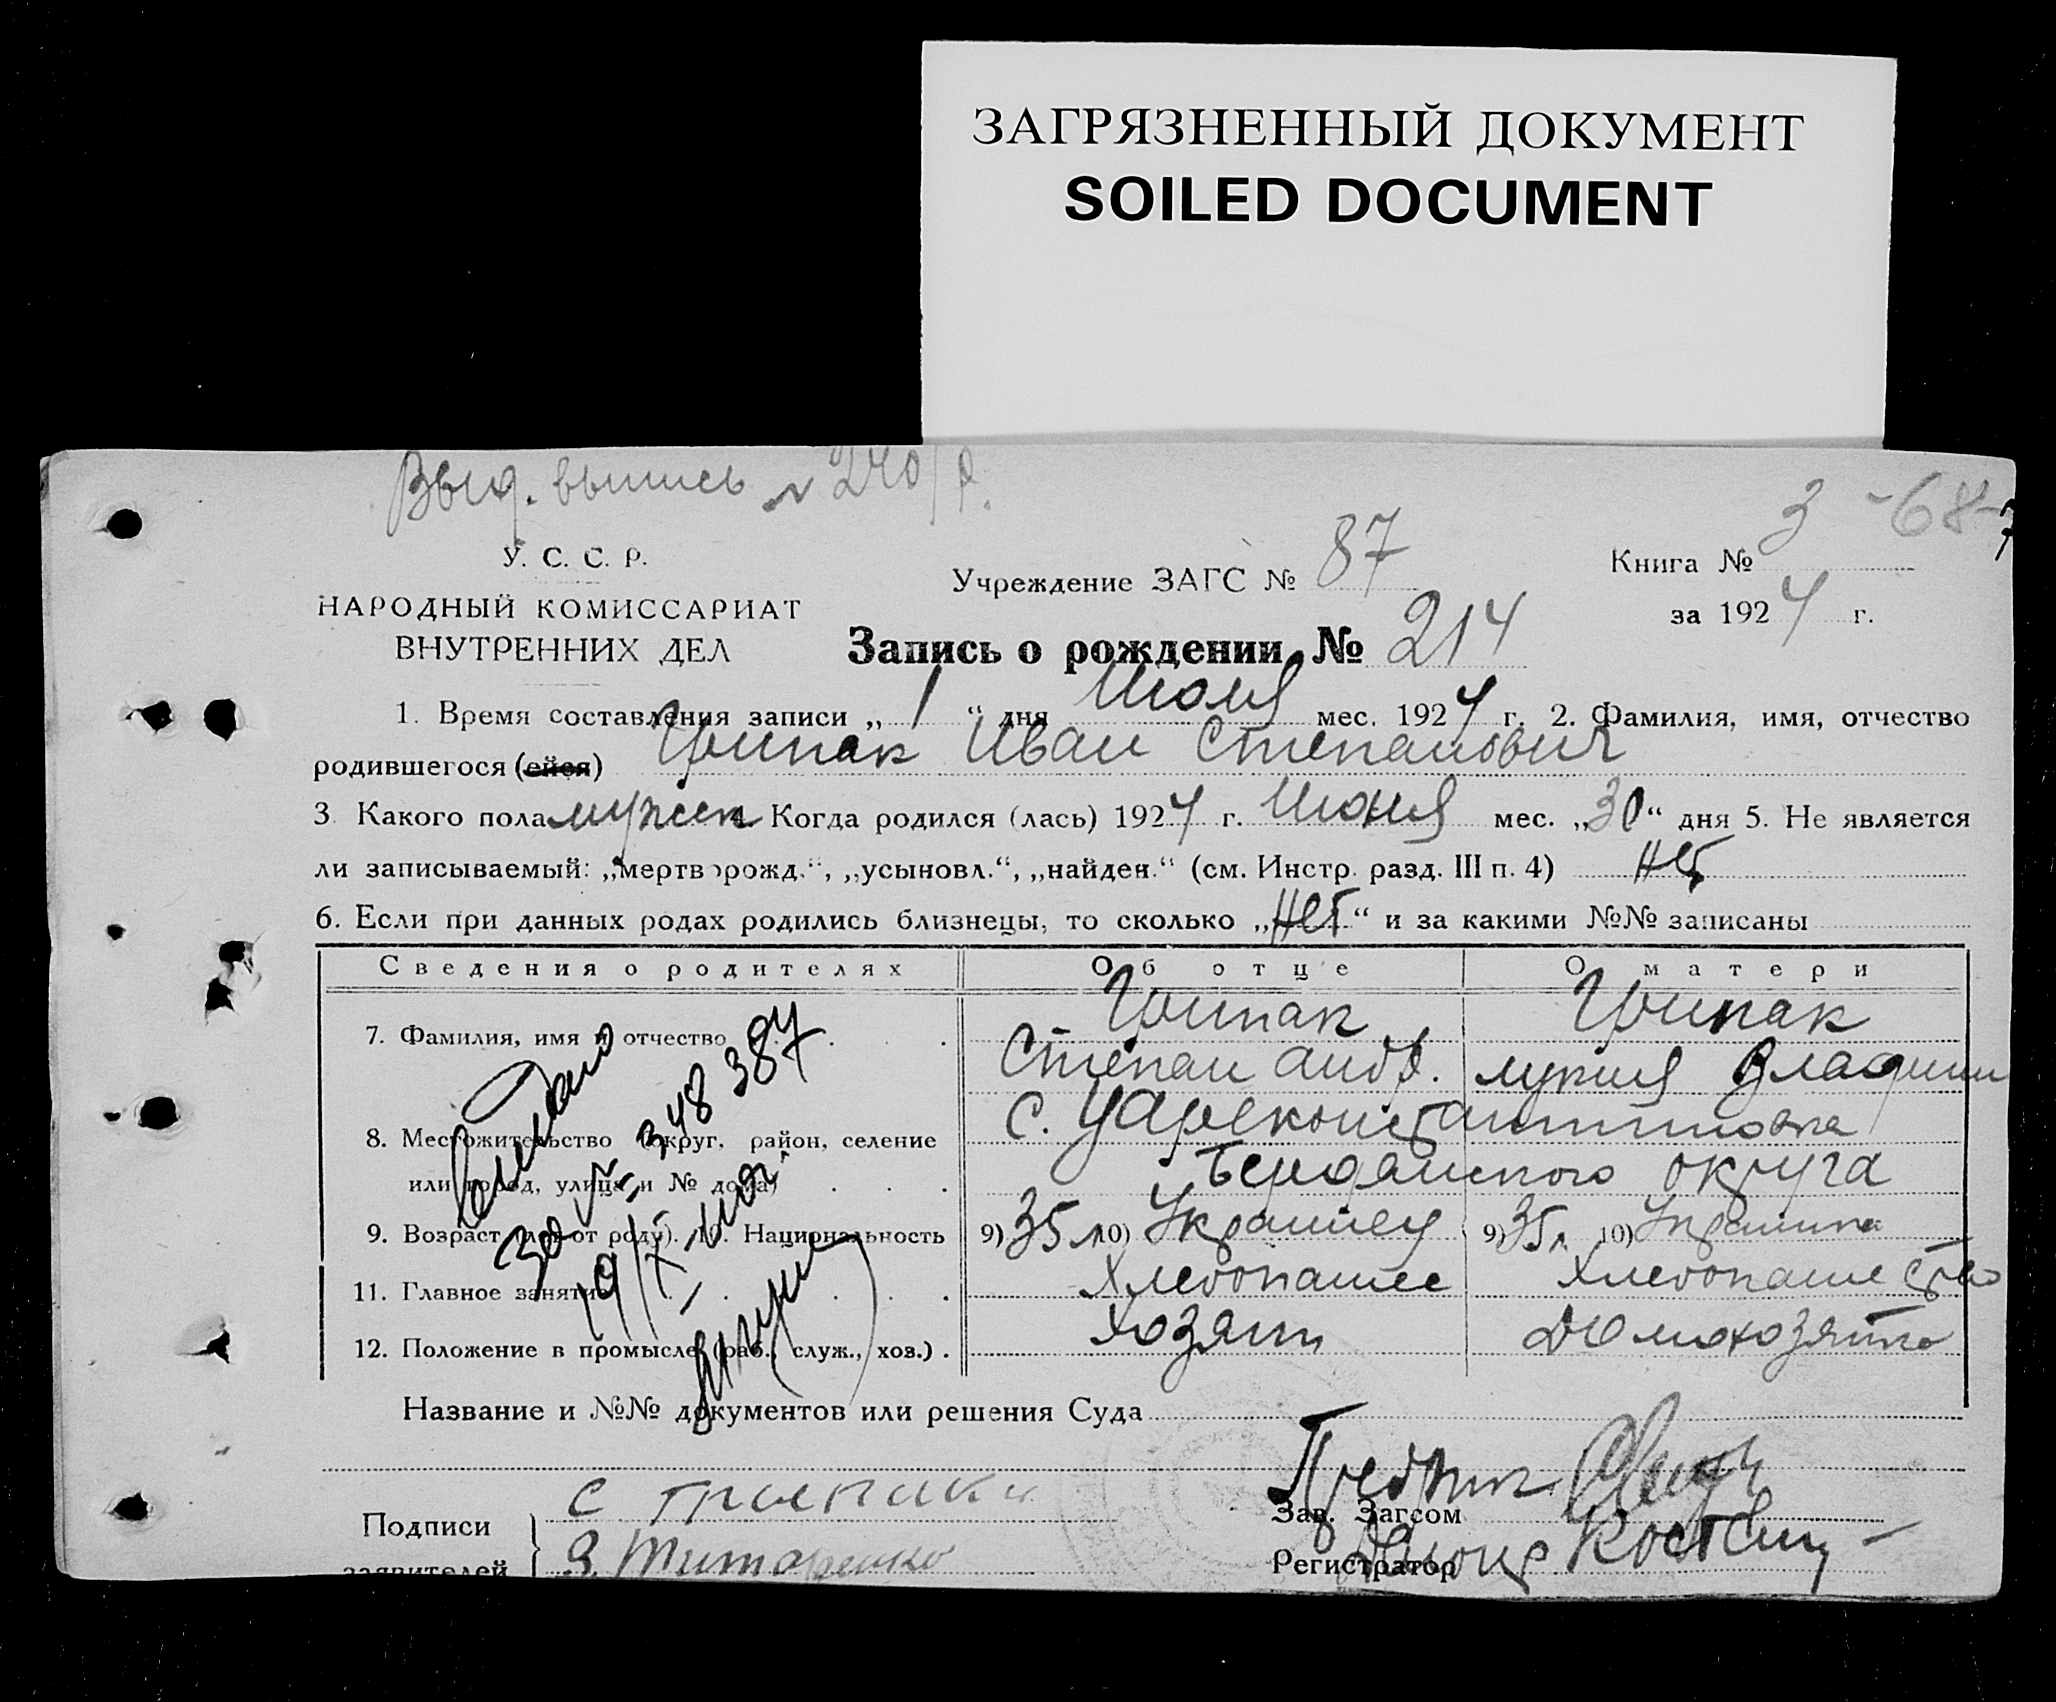 ЗАГРЯЗНЕННЫЙ ДОКУМЕНТ
SOILED DOCUMENT
Выд. выпись № 240/р.
3 -68-
У. С. С. Р.
НАРОДНЫЙ КОМИССАРИАТ
ВНУТРЕННИХ ДЕЛ
Учреждение ЗАГС № 87
Книга №
за 1924 г.
Запись о рождении № 214
1. Время составления записи „ 1 “ дня Июля мес. 1924 г. 2. Фамилия, имя, отчество
родившегося (ейся) Грипак Иван Степанович
3. Какого пола мужск Когда родился (лась) 1924 г. Июня мес. „30“ дня 5. Не является
ли записываемый: „мертворожд.“, „усыновл.“, „найден.“ (см. Инстр. разд. III п. 4) нет
6. Если при данных родах родились близнецы, то сколько „нет“ и за какими №№ записаны
Сведения о родителях Об отце О матери
7. Фамилия, имя и отчество Грипак Грипак
Степан Андр. Лукия Владими
8. Местожительство (округ, район, селение С. Цареконстантиновка
или город, улица и № дома) Бердянского округа
9. Возраст (лет от роду). 10. Национальность 9) 35 л 10) Украинец 9) 35 л. 10) Украинка
11. Главное занятие Хлебопашес Хлебопашество
12. Положение в промысле (раб., служ., хоз.) Хозяин домохозяйка
348387
Название и №№ документов или решения Суда
Подписи
заявителей
З. Титаренко
Зав. Загсом
Регистратор